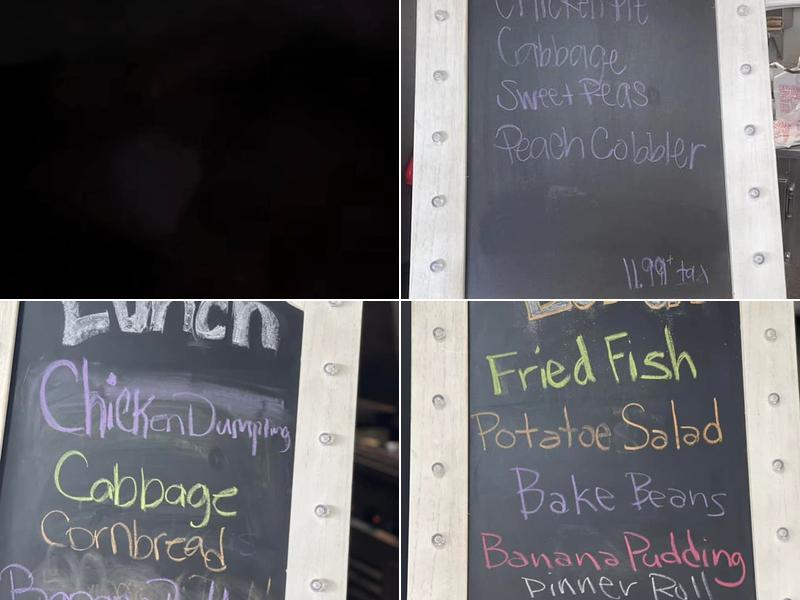 Chicken Pie
Cabbage
Sweet Peas
Peach Cobbler
11.99+ tax
Lunch
Chicken Dumpling
Cabbage
Cornbread
Banana
Fried Fish
Potatoe Salad
Bake Beans
Banana Pudding
Dinner Roll